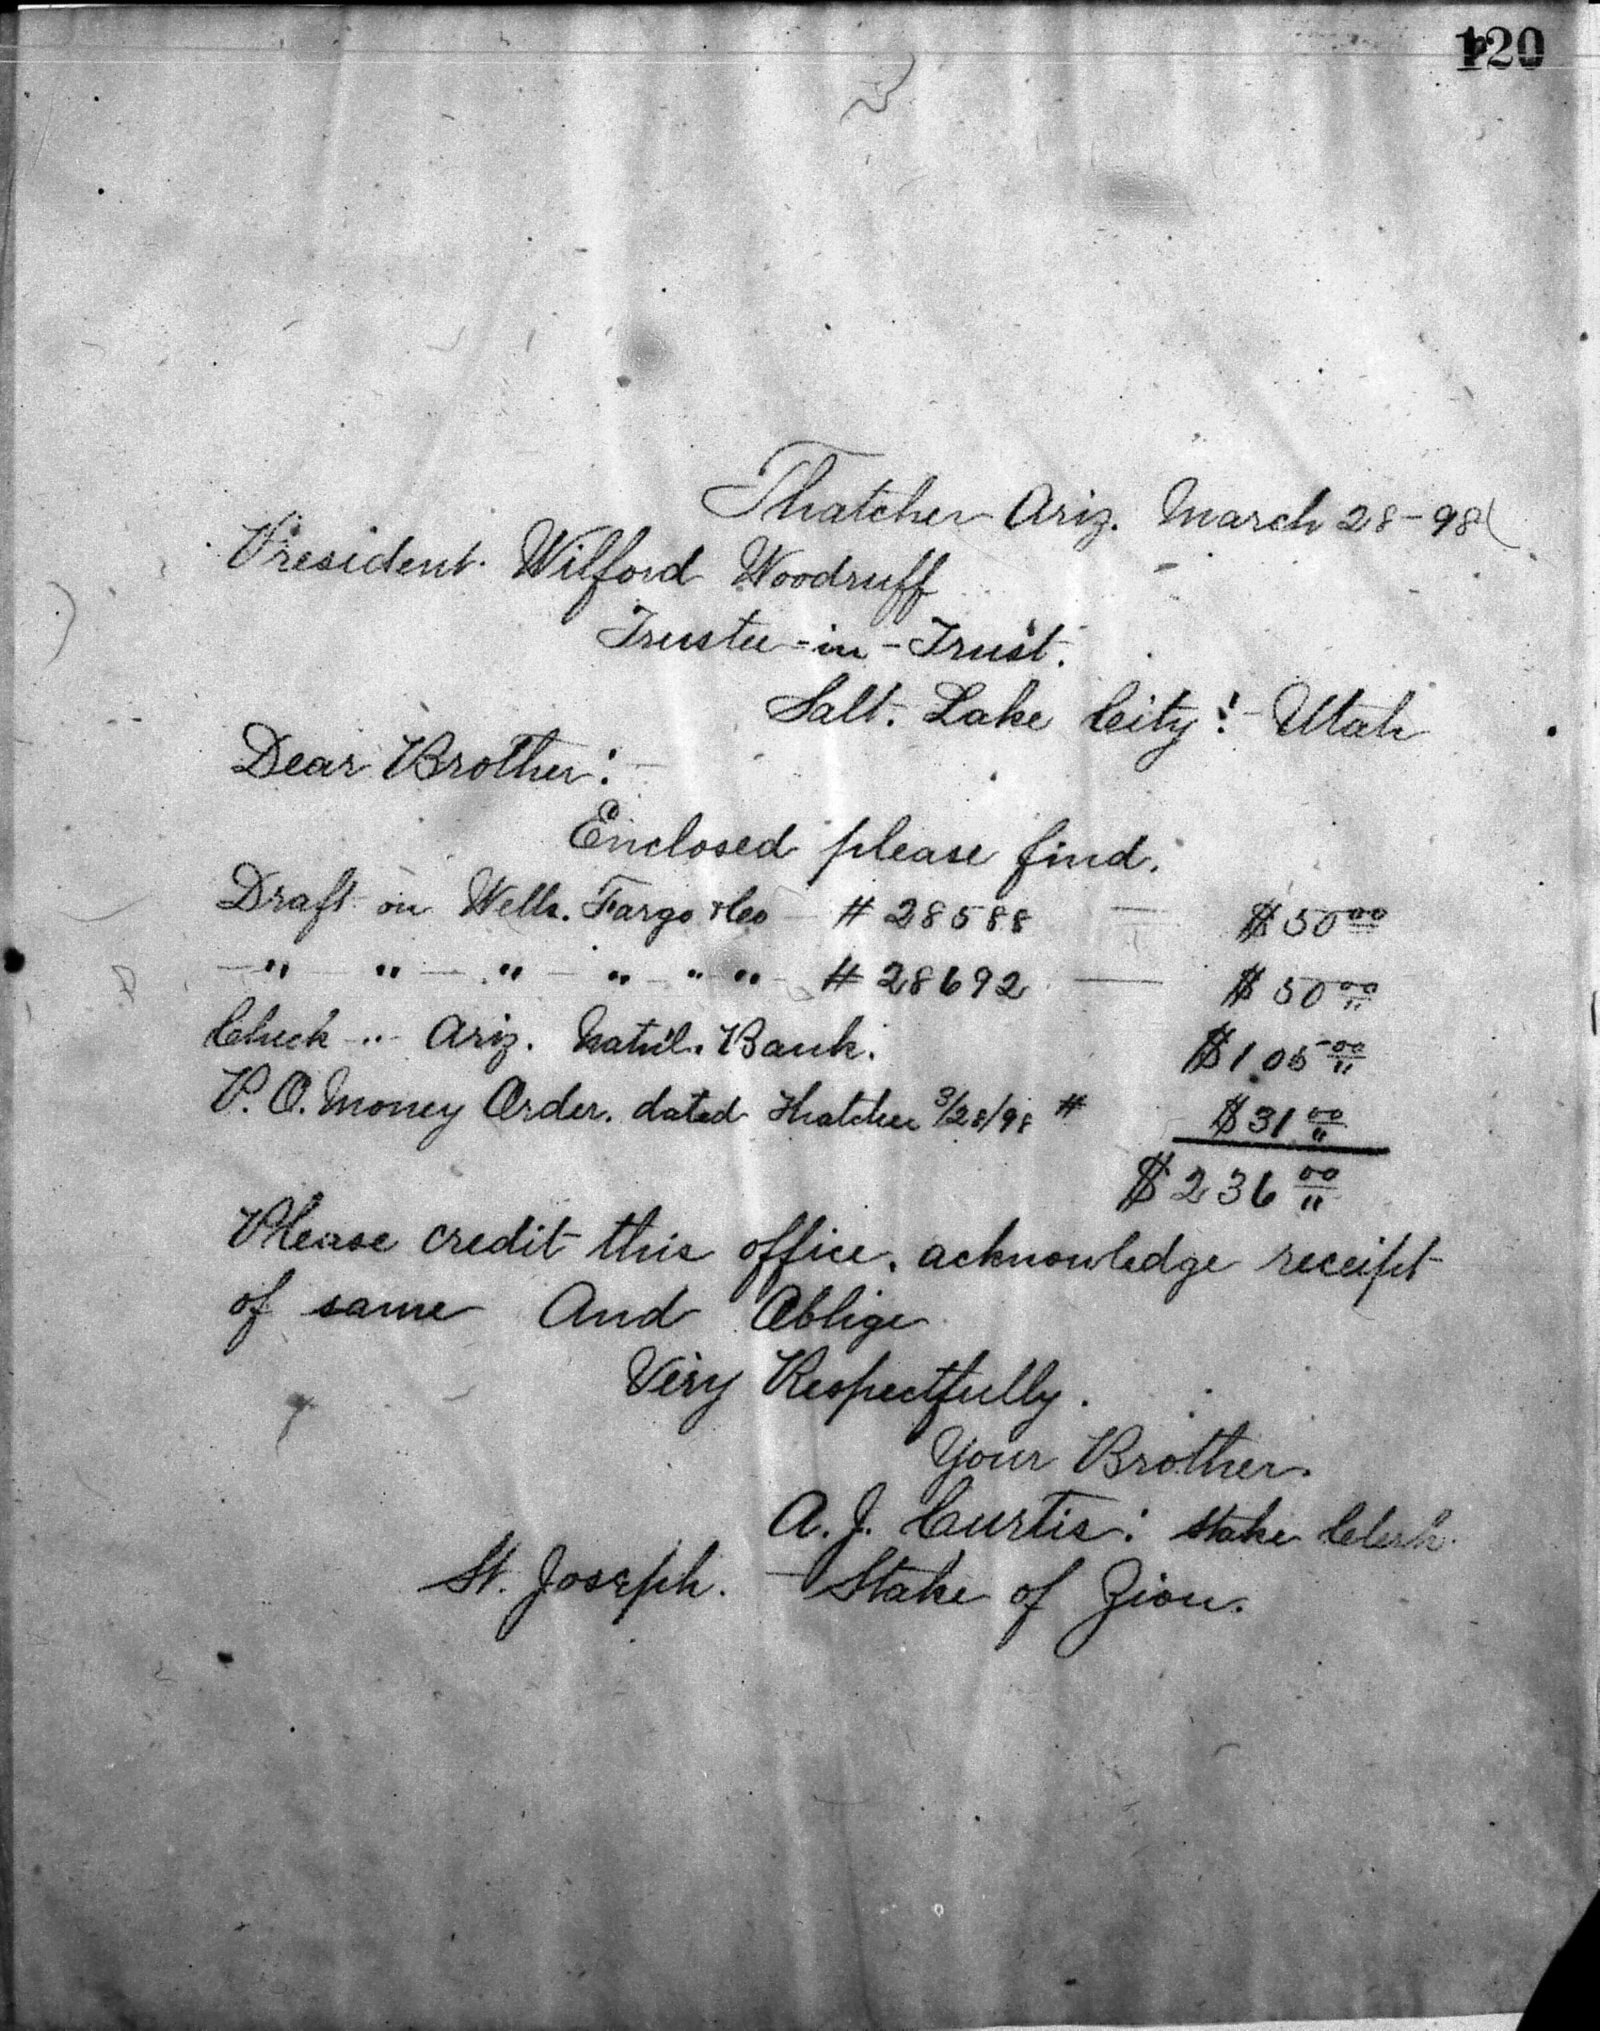 120
Thatcher Ariz. March 28-98
President. Wilford Woodruff
Trustee-in-Trust.
Salt. Lake City!- Utah
Dear Brother:-
Enclosed please find.
Draft on Wells. Fargo & Co - # 28588 — $50 00
-"- "- "- " - " - " - # 28692 — $50 00
Check " Ariz. Nat'l. Bank. $105 00
P.O. Money Order. dated Thatcher 3/28/98 # $31 00
$236 00
Please credit this office. acknowledge receipt
of same And Oblige
Very Respectfully.
Your Brother.
A. J. Curtis: Stake Clerk.
St. Joseph. - Stake of Zion.